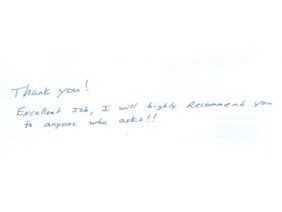 Thank you!
Excellent Job, I will highly Recommend you
to anyone who asks!!